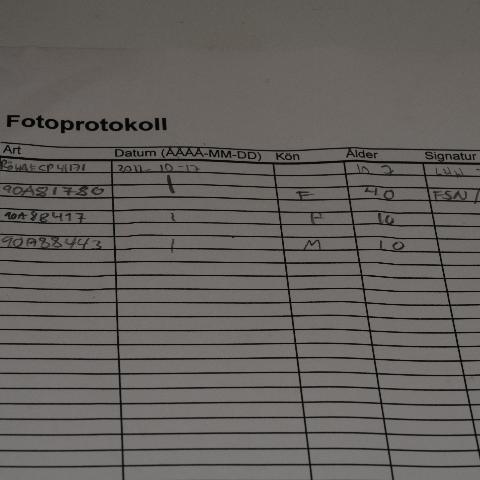 Fotoprotokoll
Art Datum (ÅÅÅÅ-MM-DD) Kön Ålder Signatur
2011-10-17
90A81780 | F 40 FSN/
90A88417 | F 10
90A88443 | M 10